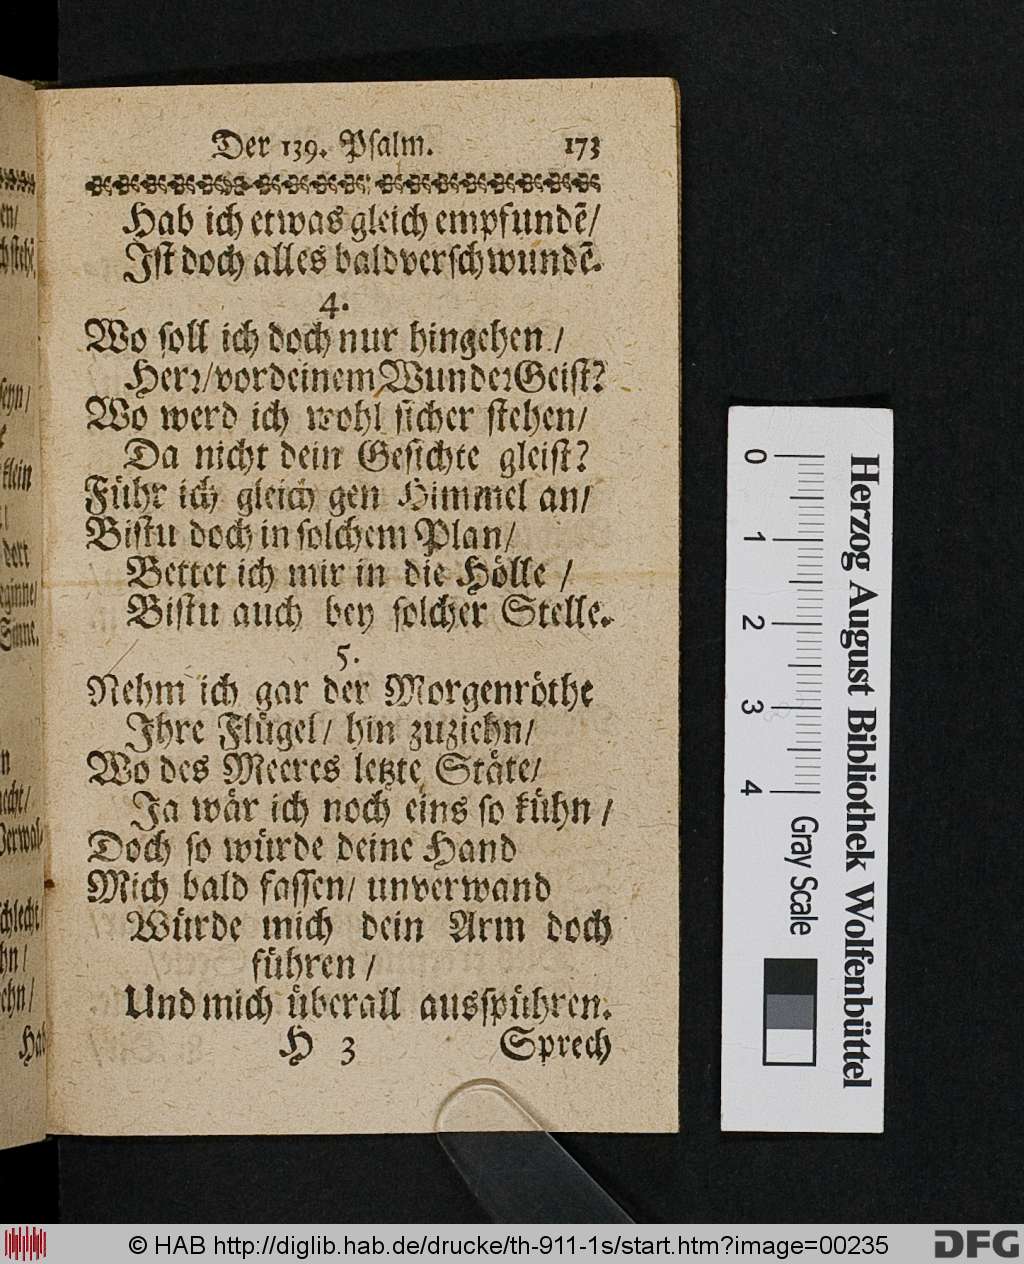 Der 139. Psalm. 173
Hab ich etwas gleich empfundẽ/
Ist doch alles bald verschwundẽ.
4.
Wo soll ich doch nur hingehen /
Herꝛ/ vor deinem WundeꝛGeist?
Wo werd ich wohl sicher stehen/
Da nicht dein Gesichte gleist?
Führ ich gleich gen Himmel an/
Bistu doch in solchem Plan/
Bettet ich mir in die Hölle /
Bistu auch bey solcher Stelle.
5.
Nehm ich gar der Morgenröthe
Ihre Flügel/ hin zuziehn/
Wo des Meeres letzte Stäte/
Ja wär ich noch eins so kühn /
Doch so würde deine Hand
Mich bald fassen/ unverwand
Würde mich dein Arm doch
führen /
Und mich überall ausspühren.
H 3 Sprech
en/
seyn/
klein
dort
Sinne.
n
Verwal-
schlecht/
hn/
Hab
0 1 2 3 4
Gray Scale
Herzog August Bibliothek Wolfenbüttel
© HAB http://diglib.hab.de/drucke/th-911-1s/start.htm?image=00235
DFG